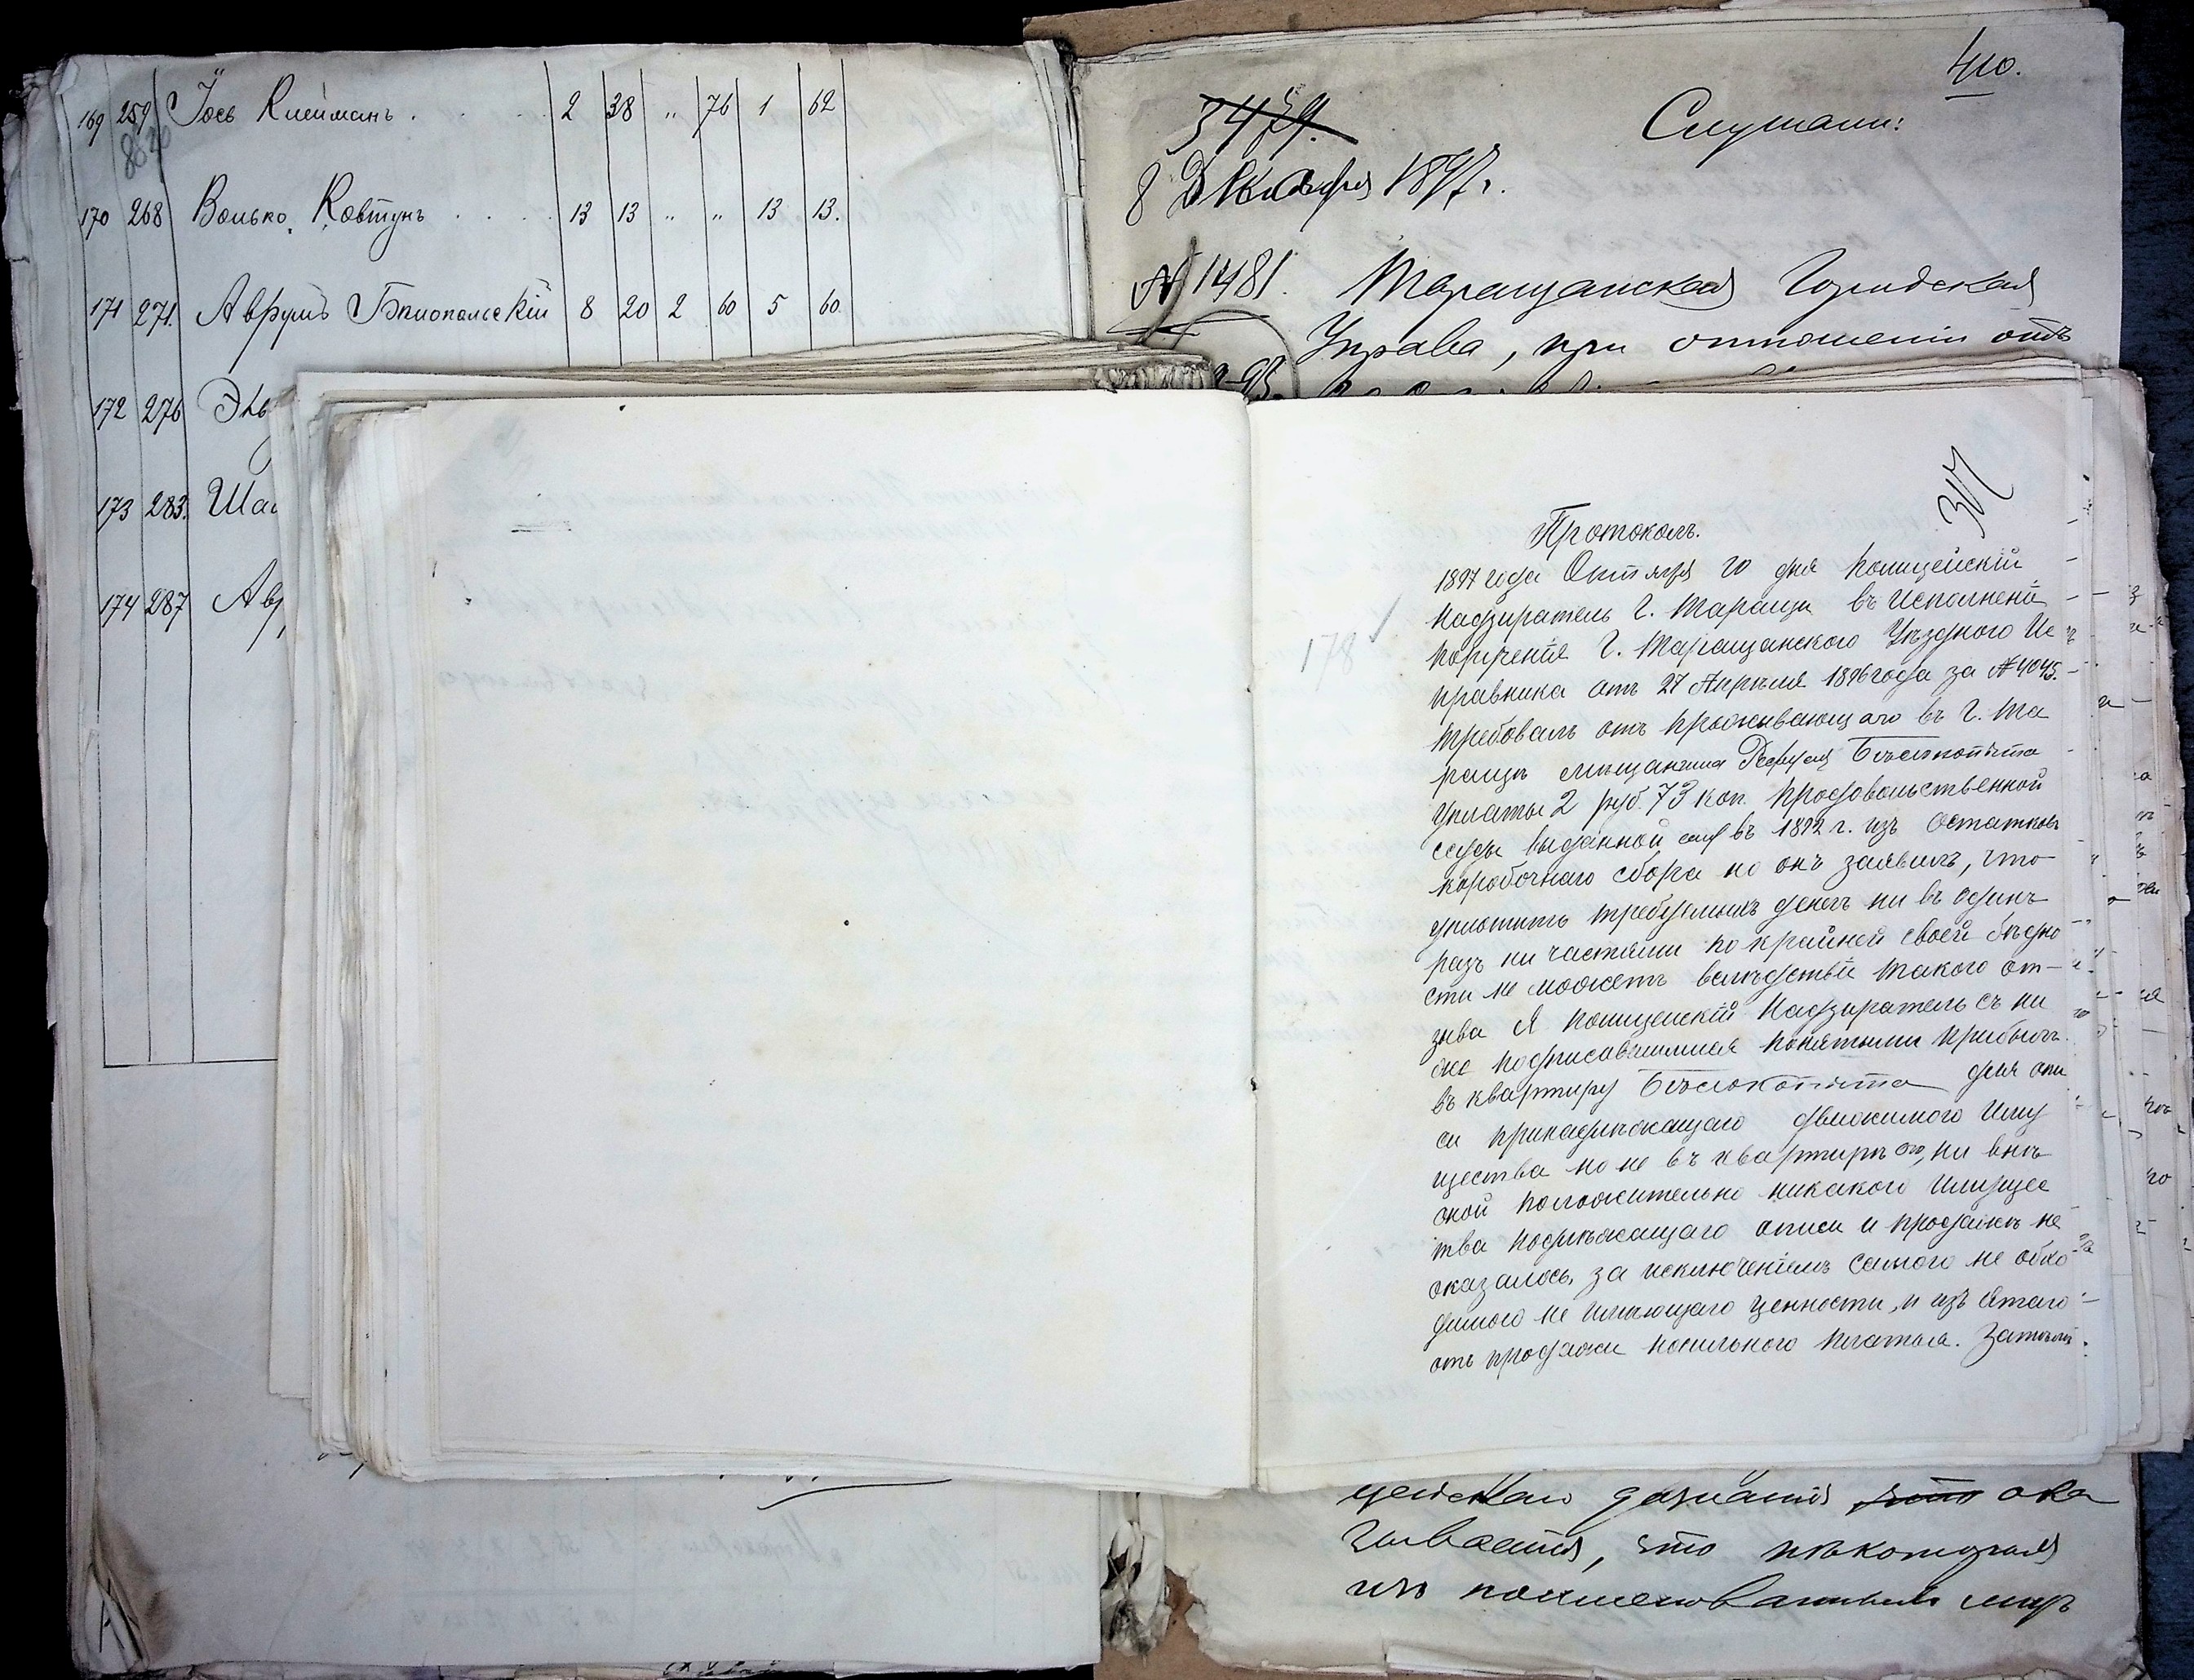 169 259 Іось Клейманъ . . . 2 38 " 76 1 62
170 268 Волько Ковтунъ . . . 13 13 " " 13 13.
171 271. Аврумъ Бялопольскій 8 20 2 60 5 60.
172 276
173 283.
174 287
410.
3479.
Слушали:
8 Декабря 1897 г.
№ 1481. Таращанская Городская
Управа, при отношеніи отъ
317
Протоколъ.
178
1897 года Октября 20 дня Полицейскій
Надзиратель г. Таращи въ исполненіи
порученія Г. Таращанскаго Уѣзднаго Ис
правника отъ 27 Апрѣля 1896 года за № 4045.
требовалъ отъ проживающаго въ г. Та
ращѣ мѣщанина Бѣлокопыта
уплаты 2 руб. 73 коп. продовольственной
ссуды выданной ему въ 1892 г. изъ остатковъ
коробочнаго сбора но онъ заявилъ, что
уплатить требуемыхъ денегъ ни въ одинъ
разъ ни частями по крайней своей бѣдно
сти не можетъ вслѣдствіе такого от-
зыва Я Полицейскій Надзиратель съ ни
же подписавшимися понятыми прибылъ
въ квартиру Бѣлокопыта для опи
си принадлежащаго движимого иму
щества но не въ квартирѣ его, ни внѣ
оной положительно никакого имущес
тва подлежащаго описи и продажѣ не
оказалось, за исключеніемъ самого не обхо
димого не имѣющаго цѣнности, и изъ ятаго
отъ продажи носильного платья. Затѣмъ
дознанія что ока
зывается, что нѣкоторыя
изъ поименованныхъ лицъ